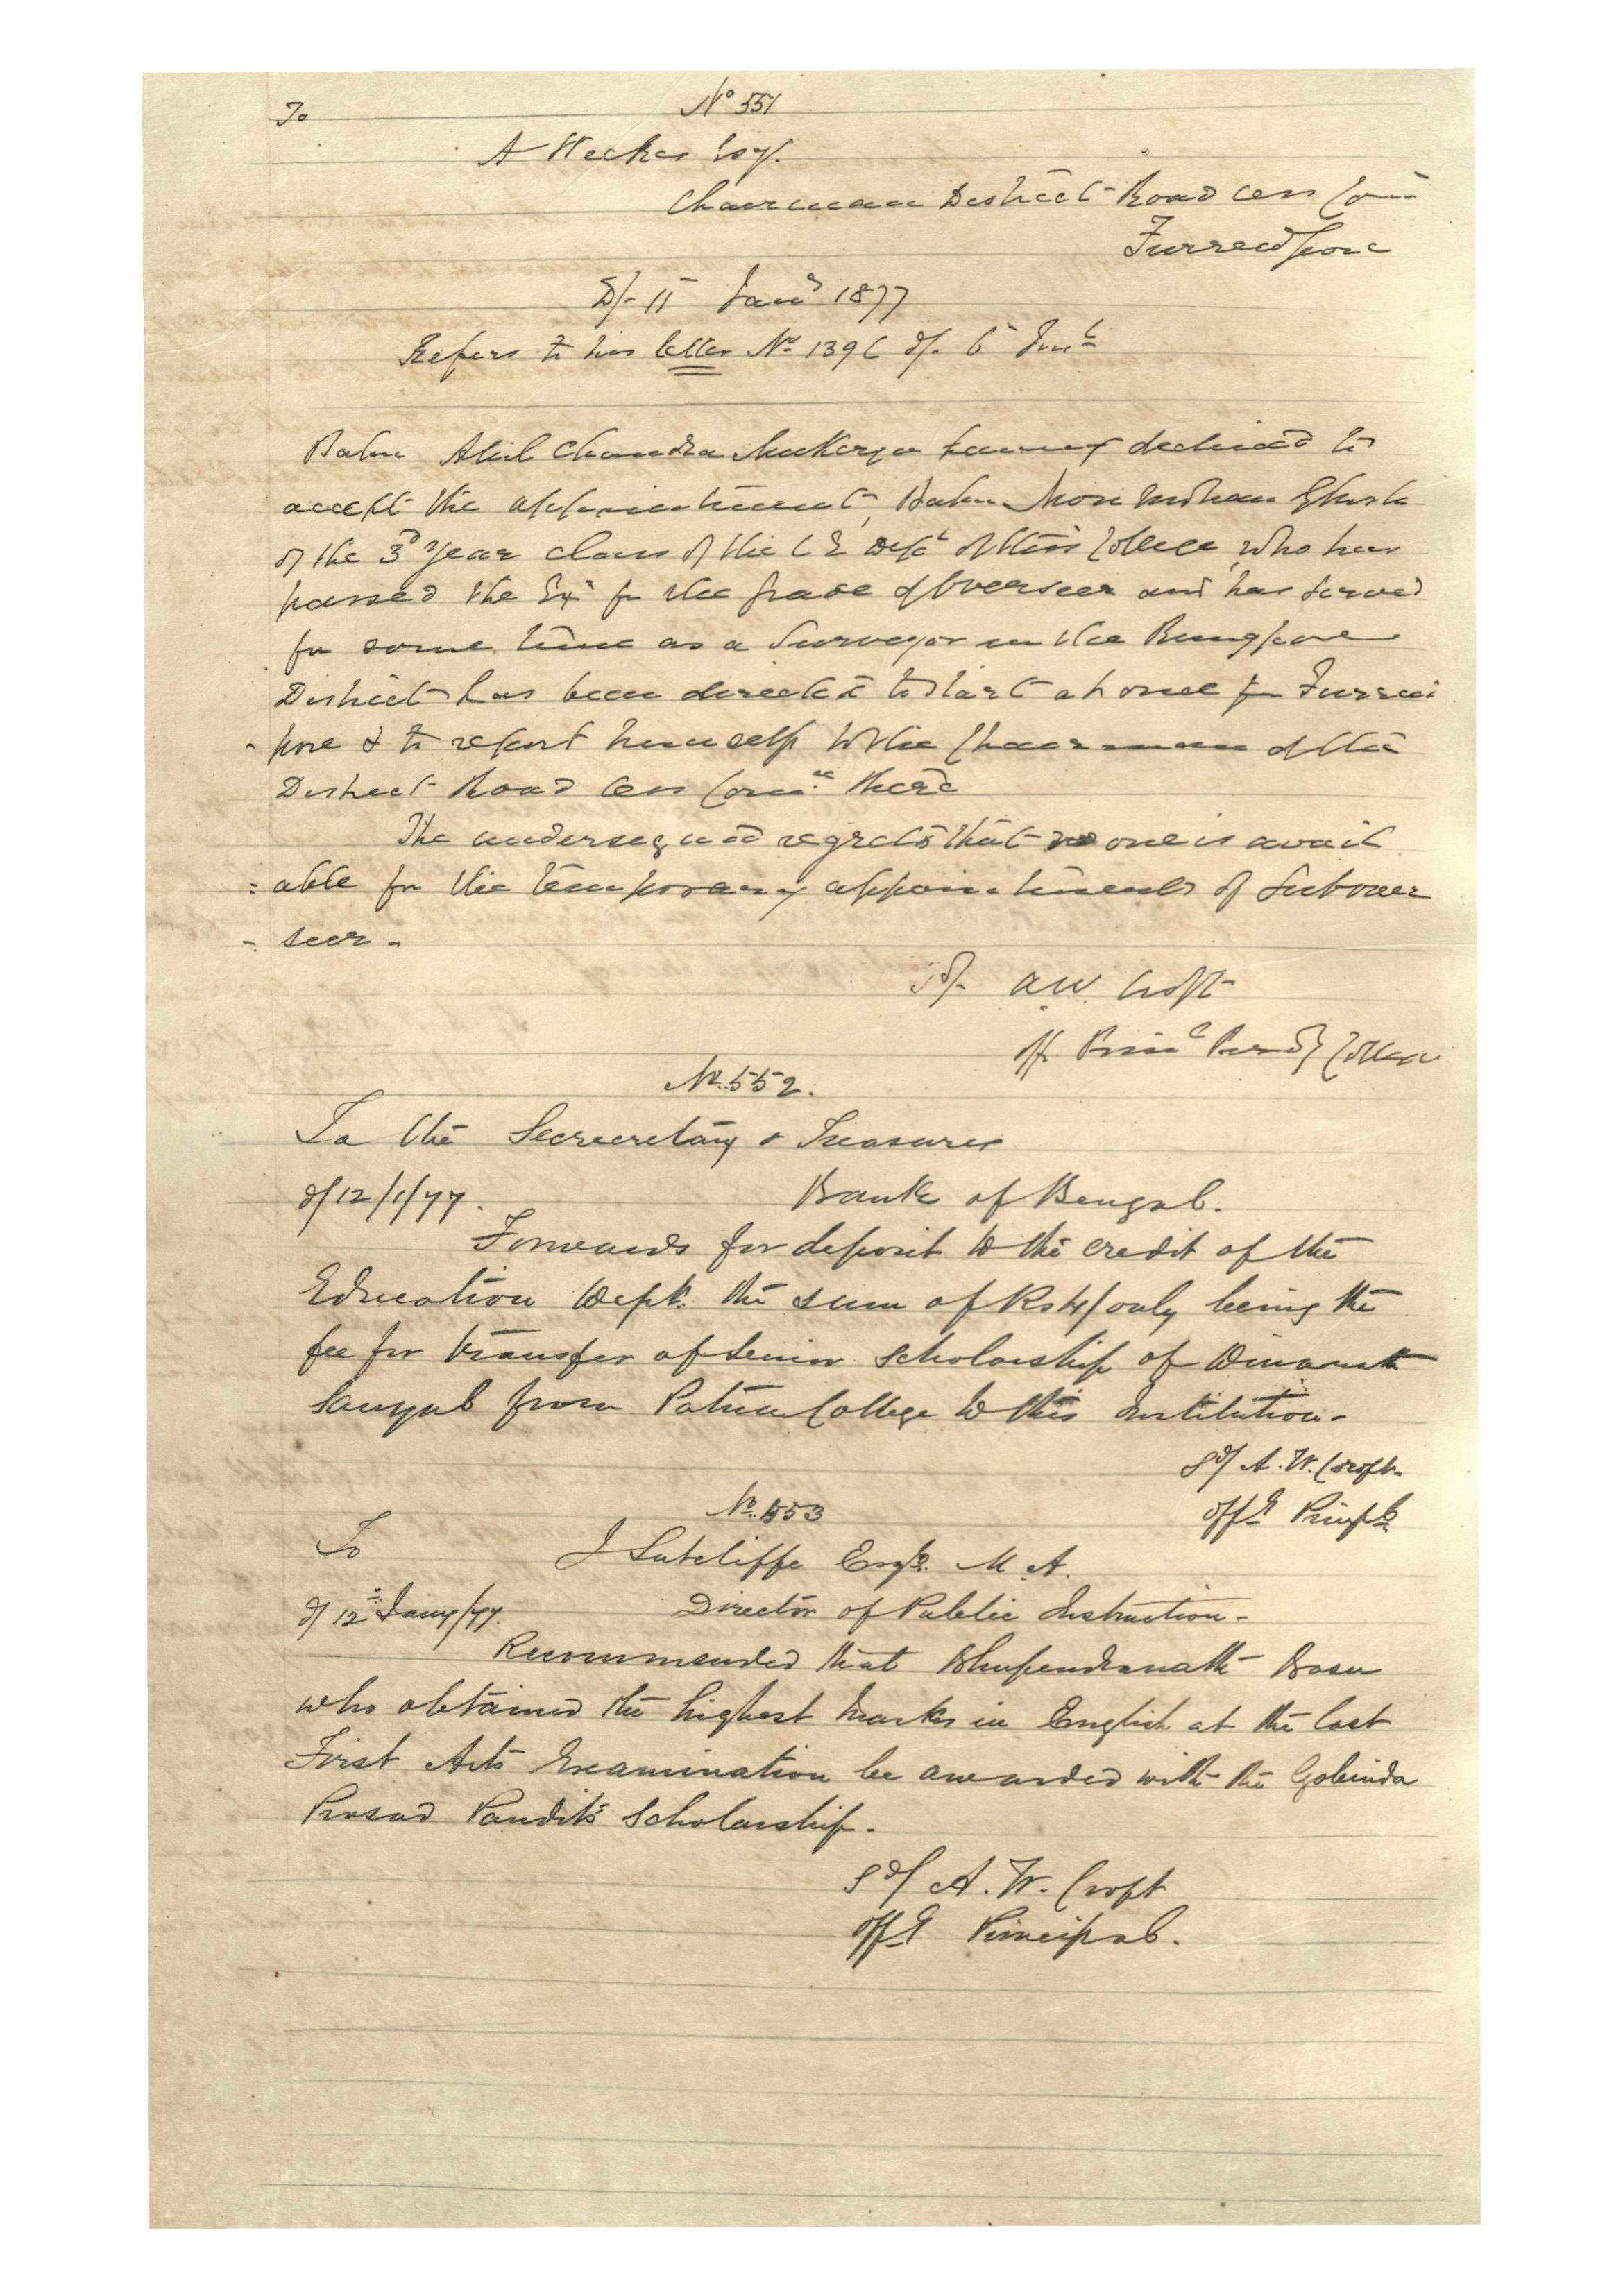 To
No 551
A Weekes Esq.
Chairman District Road Cess Com
Furreedpore
D/- 11 Jany 1877
Refers to his letter No 1396 d/- 6 Inst
Babu Akil Chandra Mukerjea having declined to
accept the appointment, Babu Moni Mohan Ghosh
of the 3d year class of the C E Dept of this College, who has
passed the Exn for the grade of Overseer and has served
for some time as a Surveyor in the Rungpore
District has been directed to start at once for Furreed
- pore & to report himself to the Chairman of the
District Road Cess Comee there
The undersigned regrets that no one is avail
= able for the temporary appointments of Subover
- seer -
Sd/- A W. Croft
Off. Prinl Presdy College
No. 552.
To the Secrecretary & Treasurer
d/ 12/1/77.
Bank of Bengal.
Forwards for deposit to the credit of the
Education Dept. the sum of Rs 4/ only being the
fee for transfer of Senior Scholarship of Dinanath
Sanyal from Patna College to this Institution -
Sd/ A. W. Croft.
Offg Prinpl
No. 553
To
J Sutcliffe Esqr. M. A.
d/ 12th Jany/77.
Director of Public Instruction -
Recommended that Bhupendranath Basu
who obtained the highest marks in English at the last
First Arts Examination be awarded with the Gobinda
Prosad Pandit's Scholarship.
Sd/ A. W. Croft
Offg Principal.